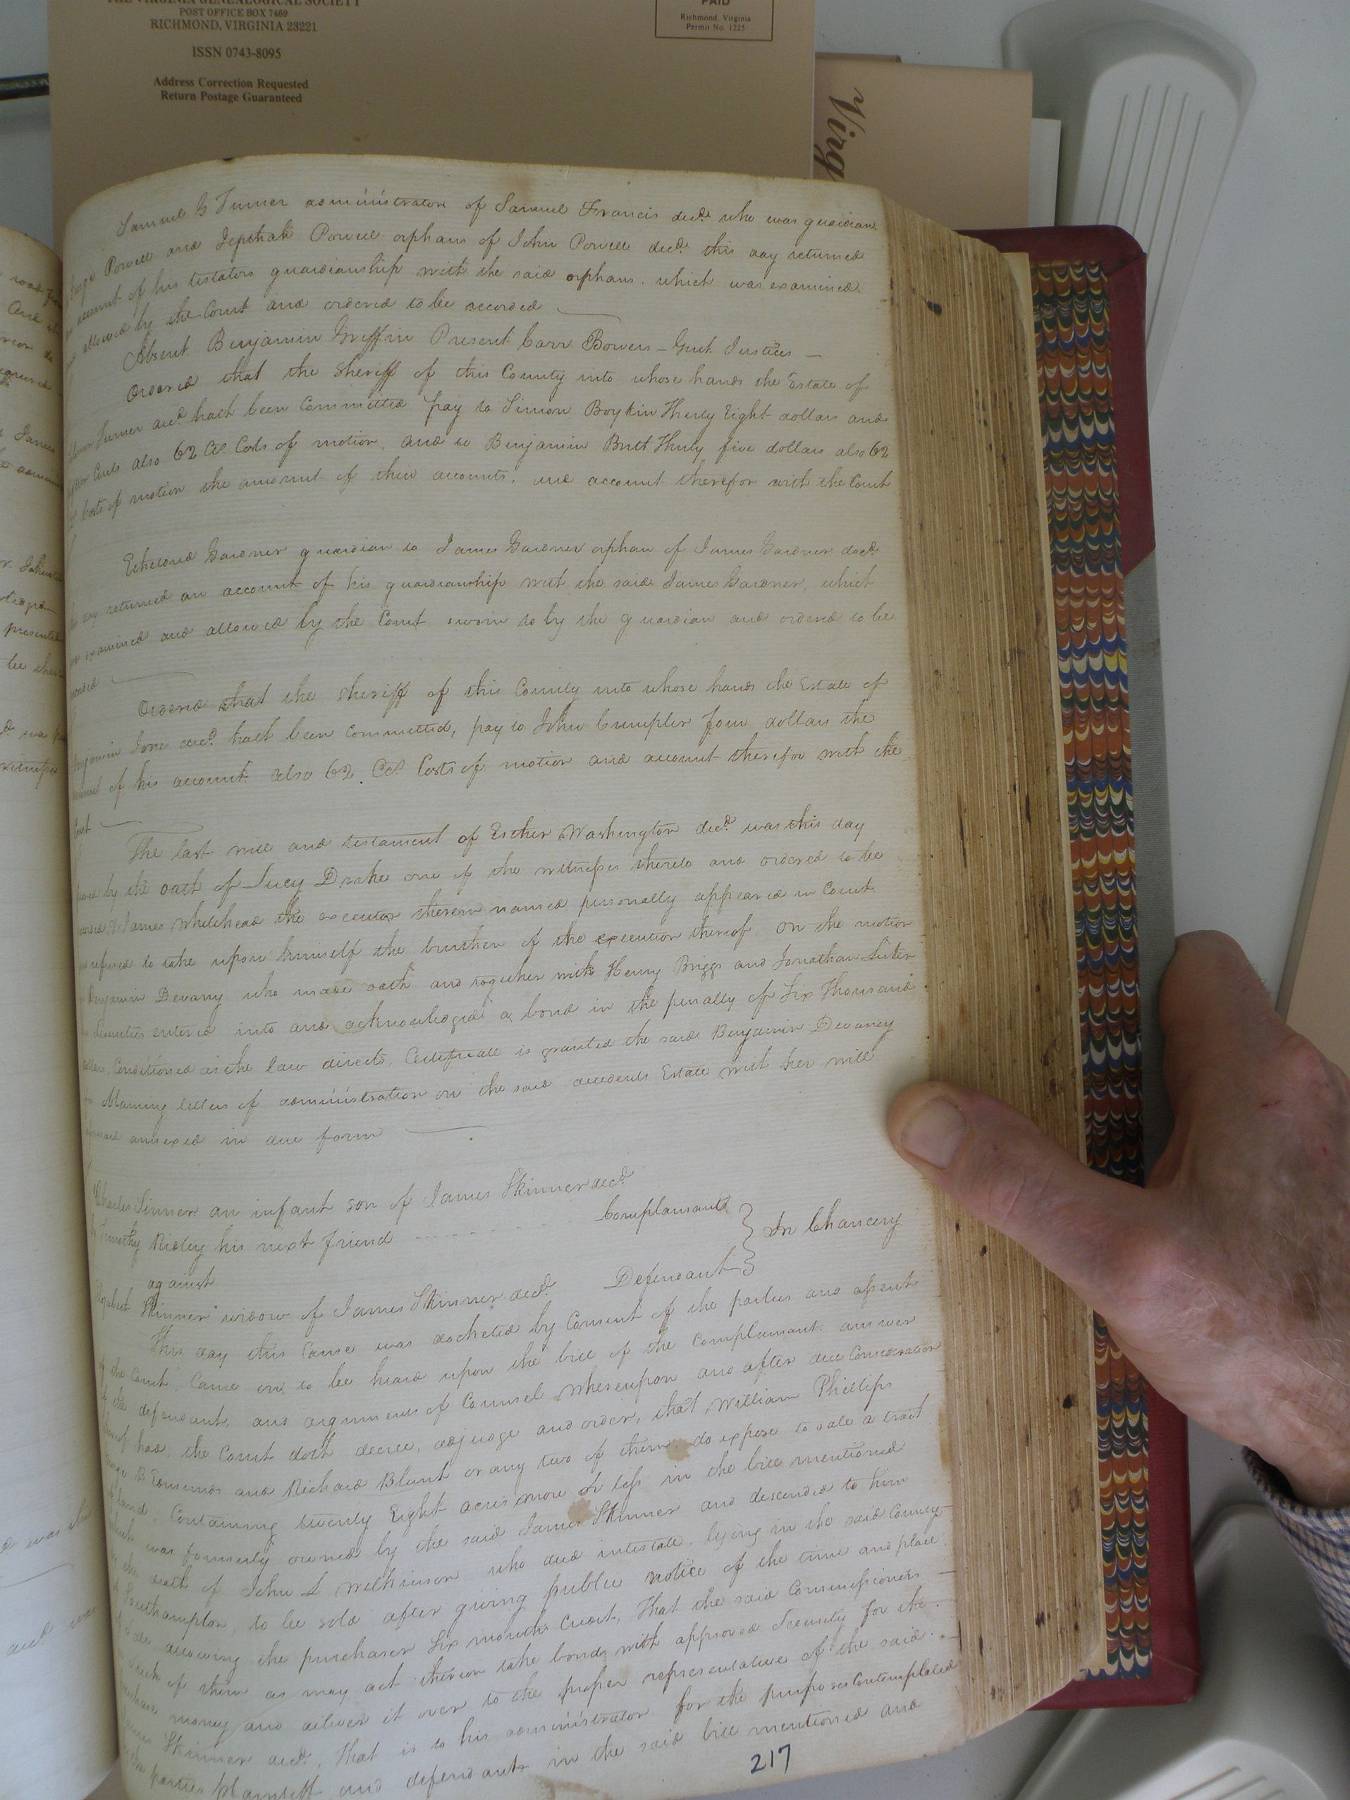 THE VIRGINIA GENEALOGICAL SOCIETY
POST OFFICE BOX 7469
RICHMOND, VIRGINIA 23221
ISSN 0743-8095
Address Correction Requested
Return Postage Guaranteed
PAID
Richmond, Virginia
Permit No. 1225
Virg
Samuel B Turner administrator of Samuel Francis decd. who was guardian
Powell and Jepthah Powell orphans of John Powell decd. this day returned
account of his testators guardianship with the said orphans. which was examined
allowed by the Court and ordered to be recorded
Absent Benjamin Griffin Present Carr Bowers Gent Justices
Ordered that the Sheriff of this County into whose hands the Estate of
Turner decd hath been Committed pay to Simon Boykin Thirty Eight dollars and
Cents also 62 Cts Costs of motion, and to Benjamin Britt Thirty five dollars also 62
Costs of motion the amount of their accounts, and account therefor with the Court
Gardner guardian to James Gardner orphan of James Gardner decd.
day returned an account of his guardianship with the said James Gardner, which
examined and allowed by the Court sworn to by the guardian and ordered to be
Ordered that the Sheriff of this County into whose hands the Estate of
decd. hath been Committed, pay to John Crumpler four dollars the
of his account also 62 Cts Costs of motion and account therefor with the
Court
The last will and testament of Esther Washington decd. was this day
by the oath of Lucy Drake one of the witnesses thereto and ordered to be
James Whitehead the executor therein named personally appeared in Court
refused to take upon himself the burthen of the execution thereof. On the motion
Benjamin Devany who made oath and together with Henry Briggs and Jonathan Suter
securities entered into and acknowledged a bond in the penalty of Six Thousand
Conditioned as the law directs Certificate is granted the said Benjamin Devaney
letters of administration on the said decedents Estate with her will
annexed in due form
Charles Skinner an infant son of James Skinner decd.
Timothy Ridley his next friend Complainant
In Chancery
against
Skinner widow of James Skinner decd. Defendant
This day this Cause was docketed by Consent of the parties and assent
of the Court, Came on to be heard upon the bill of the Complainant. answer
of the defendant, and arguments of Counsel whereupon and after due Consideration
had, the Court doth decree, adjudge and order, that William Phillips
and Richard Blunt or any two of them do expose to sale a tract
land, Containing twenty Eight acres more or less in the bill mentioned
which was formerly owned by the said James Skinner and descended to him
by the death of John L Wilkinson who died intestate, lying in the said County
of Southampton, to be sold after giving public notice of the time and place
allowing the purchaser Six months Credit, That the said Commissioners
such of them as may act therein take bond with approved Security for the
money and deliver it over to the proper representative of the said
James Skinner decd, that is to his administrator for the purposes Contemplated
parties plaintiff and defendants in the said bill mentioned and
217